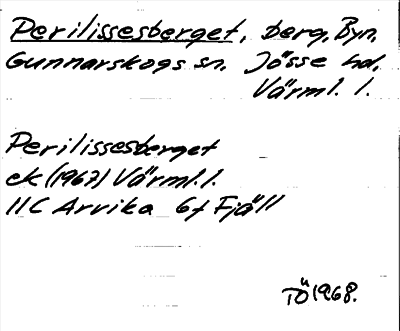 Perilissesberget, berg, Byn,
Gunnarskogs sn. Jösse hd.
Värml. l.
Perilissesberget
ek (1967) Värml. l.
11C Arvika 6f Fjäll
TÖ 1968.